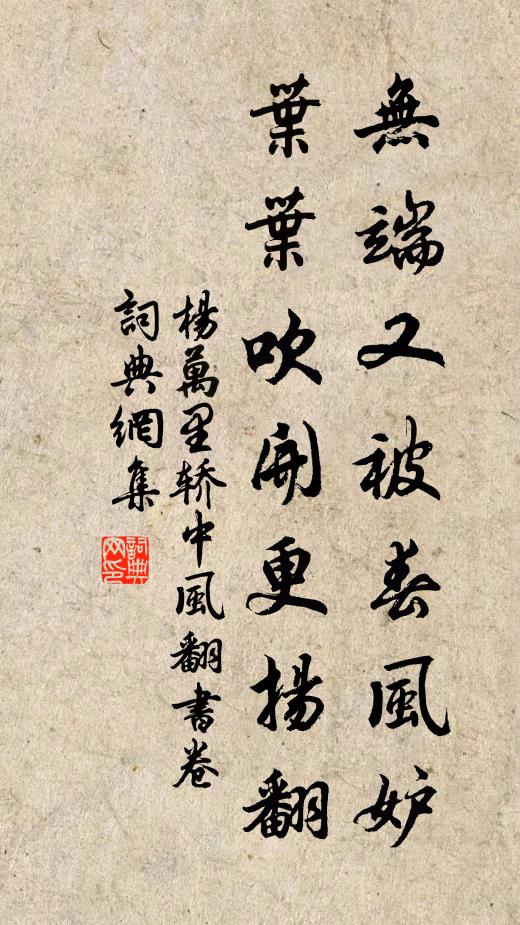 無端又被春風妒
葉葉吹開更揚翻
楊萬里轿中風翻書卷
詞典網集
詞典
网印